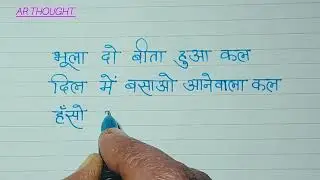 AR THOUGHT
भूला दो बीता हुआ कल
दिल में बसाओ आनेवाला कल
हँसो